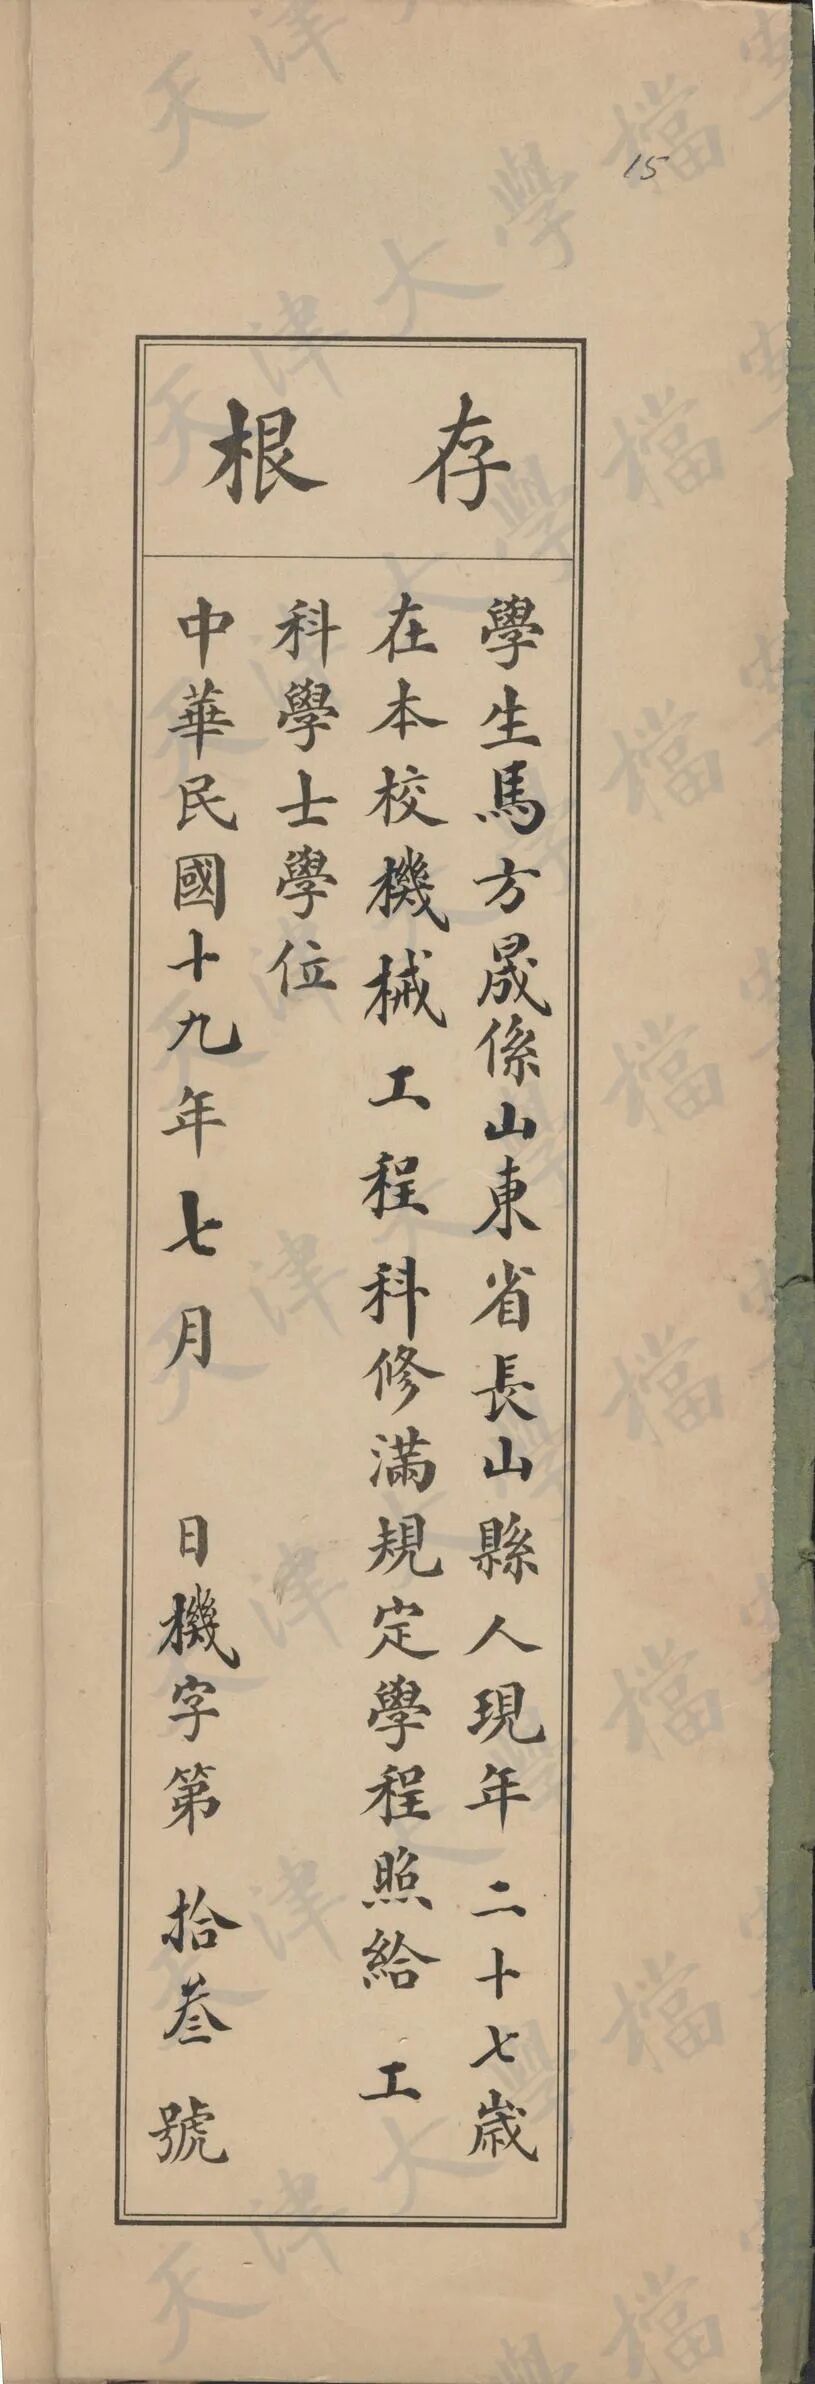 15
存根
學生馬方晟係山東省長山縣人現年二十七歲
在本校機械工程科修滿規定學程照給工
科學士學位
中華民國十九年七月 日機字第拾叁號
天津大學檔